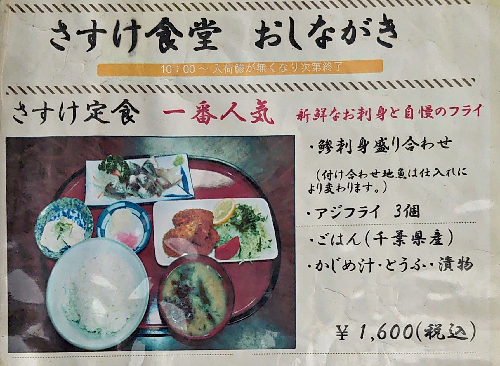 さすけ食堂 おしながき
10：00～入荷鯵が無くなり次第終了
さすけ定食 一番人気 新鮮なお刺身と自慢のフライ
・鯵刺身盛り合わせ
(付け合わせ地魚は仕入れに
より変わります。)
・アジフライ 3個
・ごはん(千葉県産)
・かじめ汁・とうふ・漬物
￥1,600(税込)